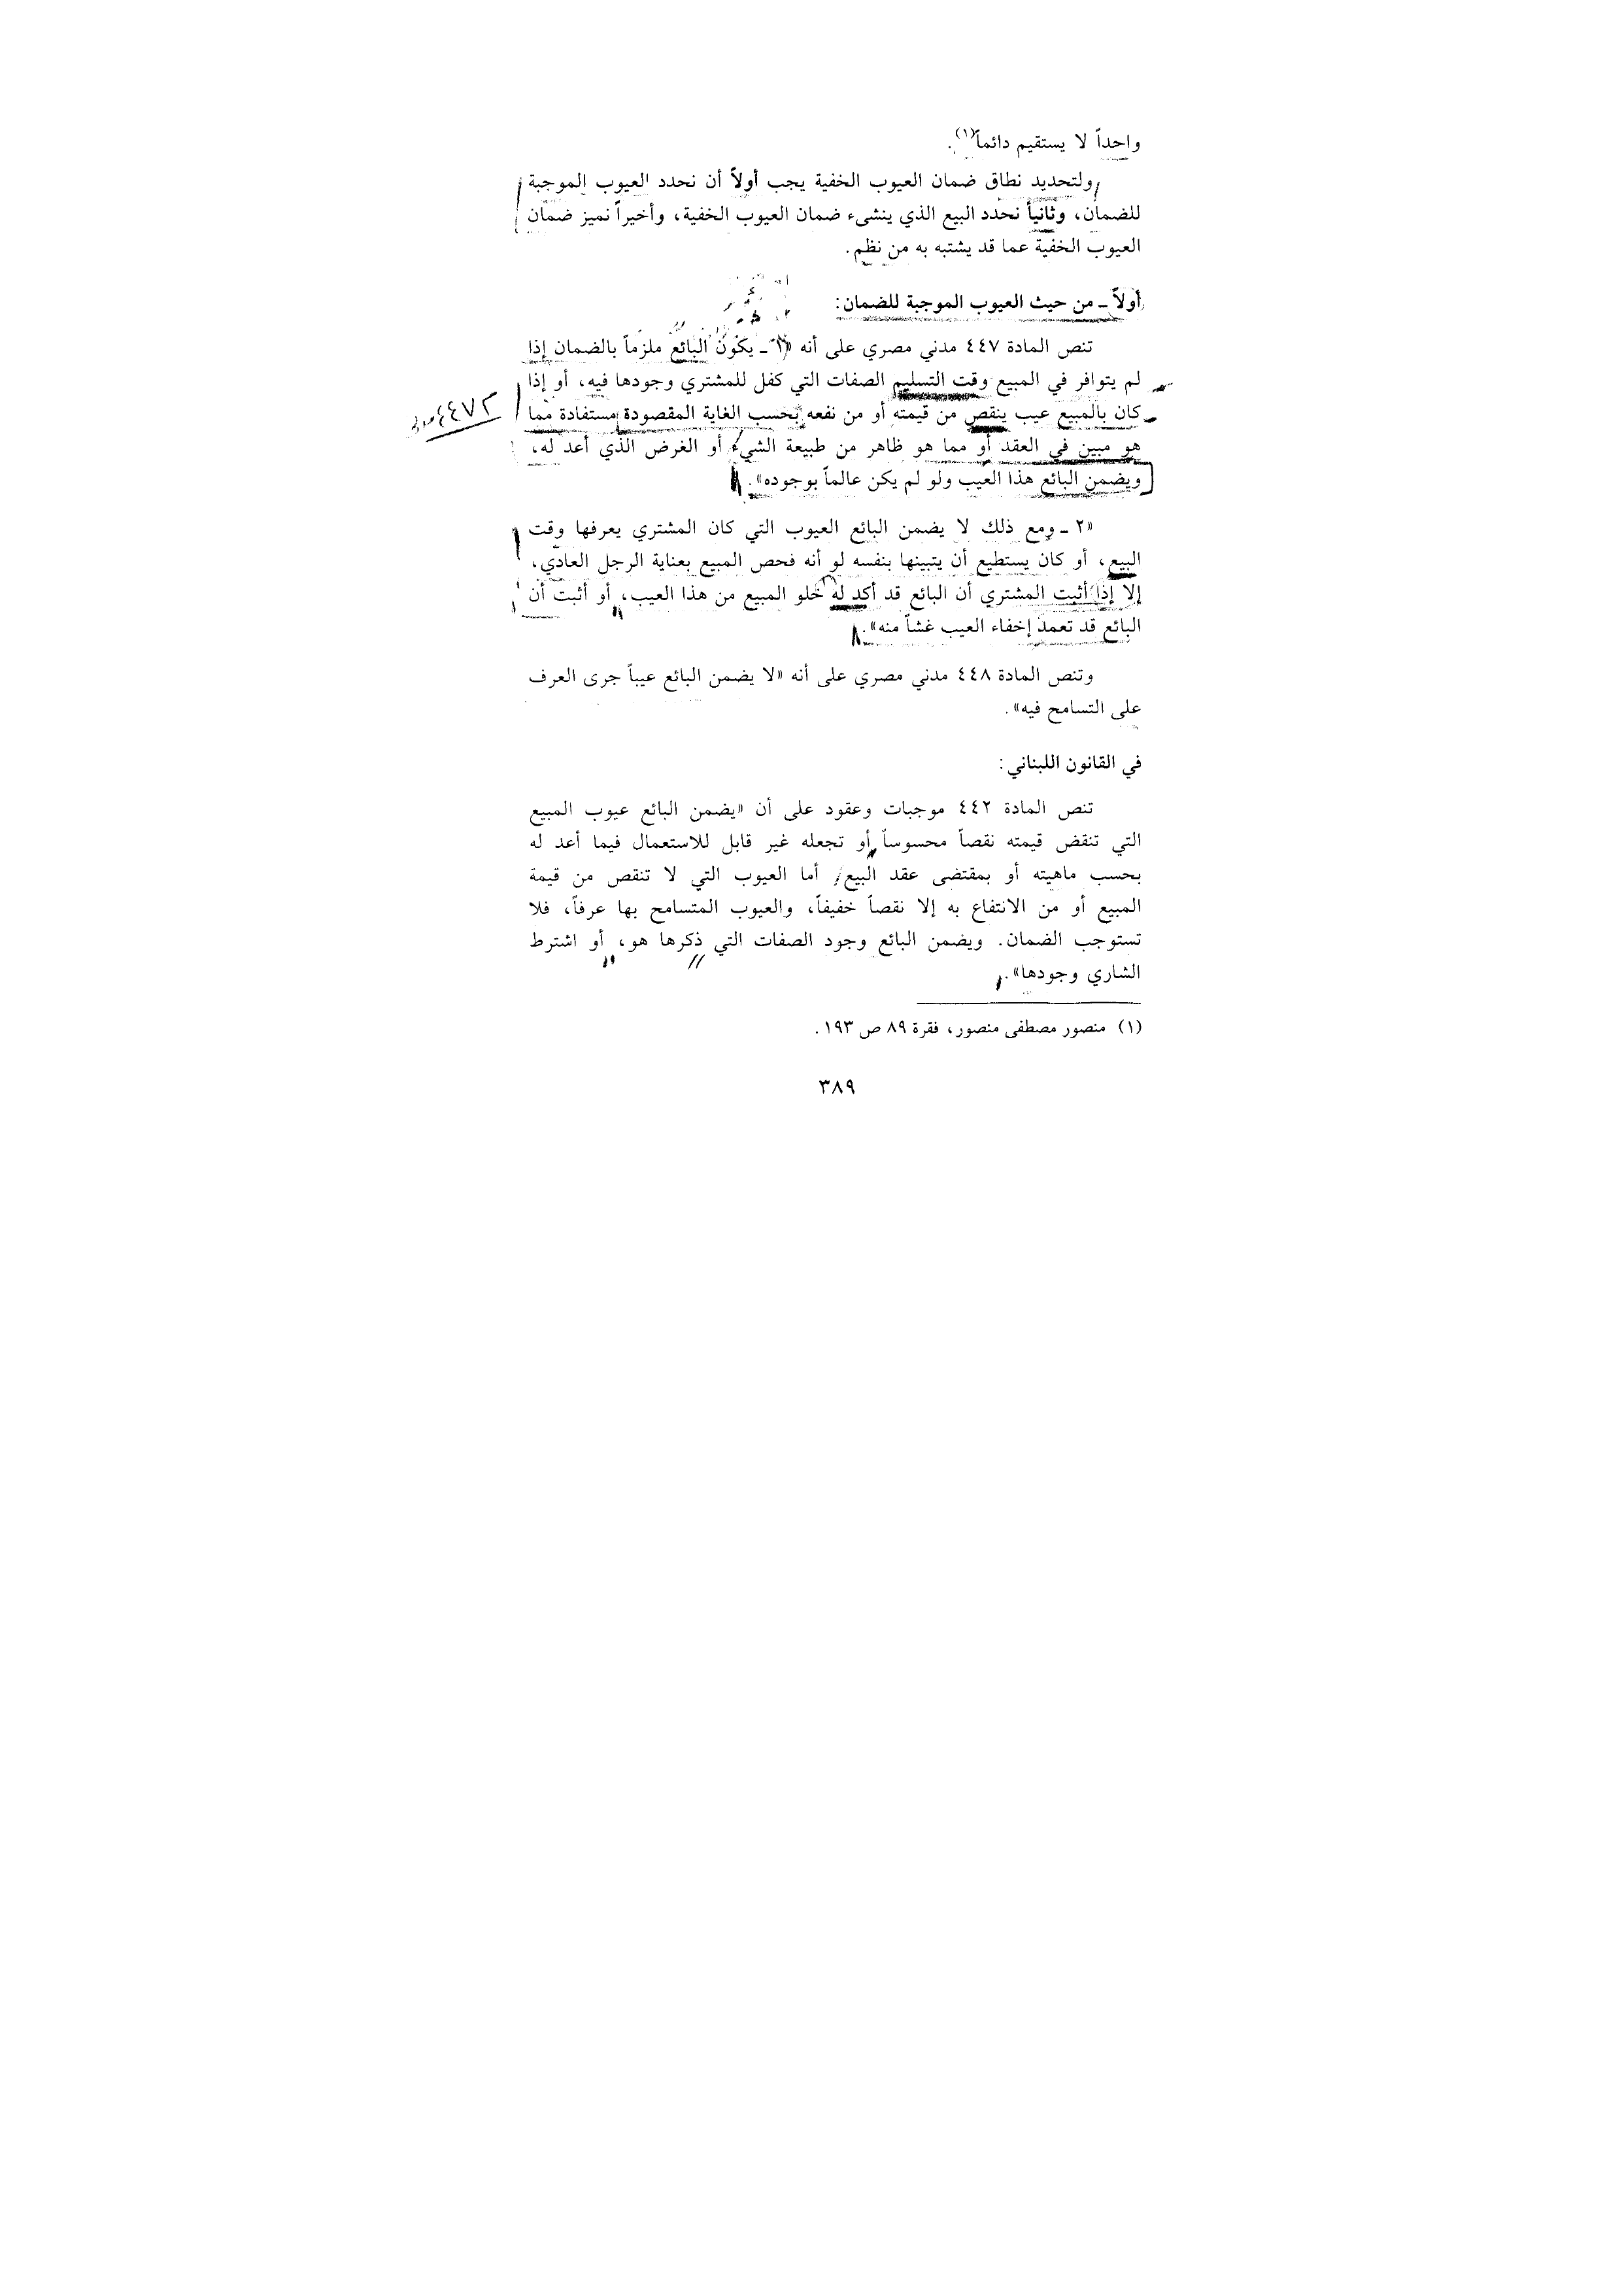 واحداً لا يستقيم دائماً(١).
ولتحديد نطاق ضمان العيوب الخفية يجب أولاً أن نحدد العيوب الموجبة
للضمان، وثانياً نحدد البيع الذي ينشىء ضمان العيوب الخفية، وأخيراً نميز ضمان
العيوب الخفية عما قد يشتبه به من نظم.
أولاً ـ من حيث العيوب الموجبة للضمان:
تنص المادة ٤٤٧ مدني مصري على أنه «١ ـ يكون البائع ملزماً بالضمان إذا
لم يتوافر في المبيع وقت التسليم الصفات التي كفل للمشتري وجودها فيه، أو إذا
كان بالمبيع عيب ينقص من قيمته أو من نفعه بحسب الغاية المقصودة مستفادة مما
هو مبين في العقد أو مما هو ظاهر من طبيعة الشيء أو الغرض الذي أعد له،
ويضمن البائع هذا العيب ولو لم يكن عالماً بوجوده».
«٢ ـ ومع ذلك لا يضمن البائع العيوب التي كان المشتري يعرفها وقت
البيع، أو كان يستطيع أن يتبينها بنفسه لو أنه فحص المبيع بعناية الرجل العادي،
إلا إذا أثبت المشتري أن البائع قد أكد له خلو المبيع من هذا العيب، أو أثبت أن
البائع قد تعمد إخفاء العيب غشاً منه».
وتنص المادة ٤٤٨ مدني مصري على أنه «لا يضمن البائع عيباً جرى العرف
على التسامح فيه».
في القانون اللبناني:
تنص المادة ٤٤٢ موجبات وعقود على أن «يضمن البائع عيوب المبيع
التي تنقض قيمته نقصاً محسوساً أو تجعله غير قابل للاستعمال فيما أعد له
بحسب ماهيته أو بمقتضى عقد البيع، أما العيوب التي لا تنقص من قيمة
المبيع أو من الانتفاع به إلا نقصاً خفيفاً، والعيوب المتسامح بها عرفاً، فلا
تستوجب الضمان. ويضمن البائع وجود الصفات التي ذكرها هو، أو اشترط
الشاري وجودها».
(١) منصور مصطفى منصور، فقرة ٨٩ ص ١٩٣.
٣٨٩